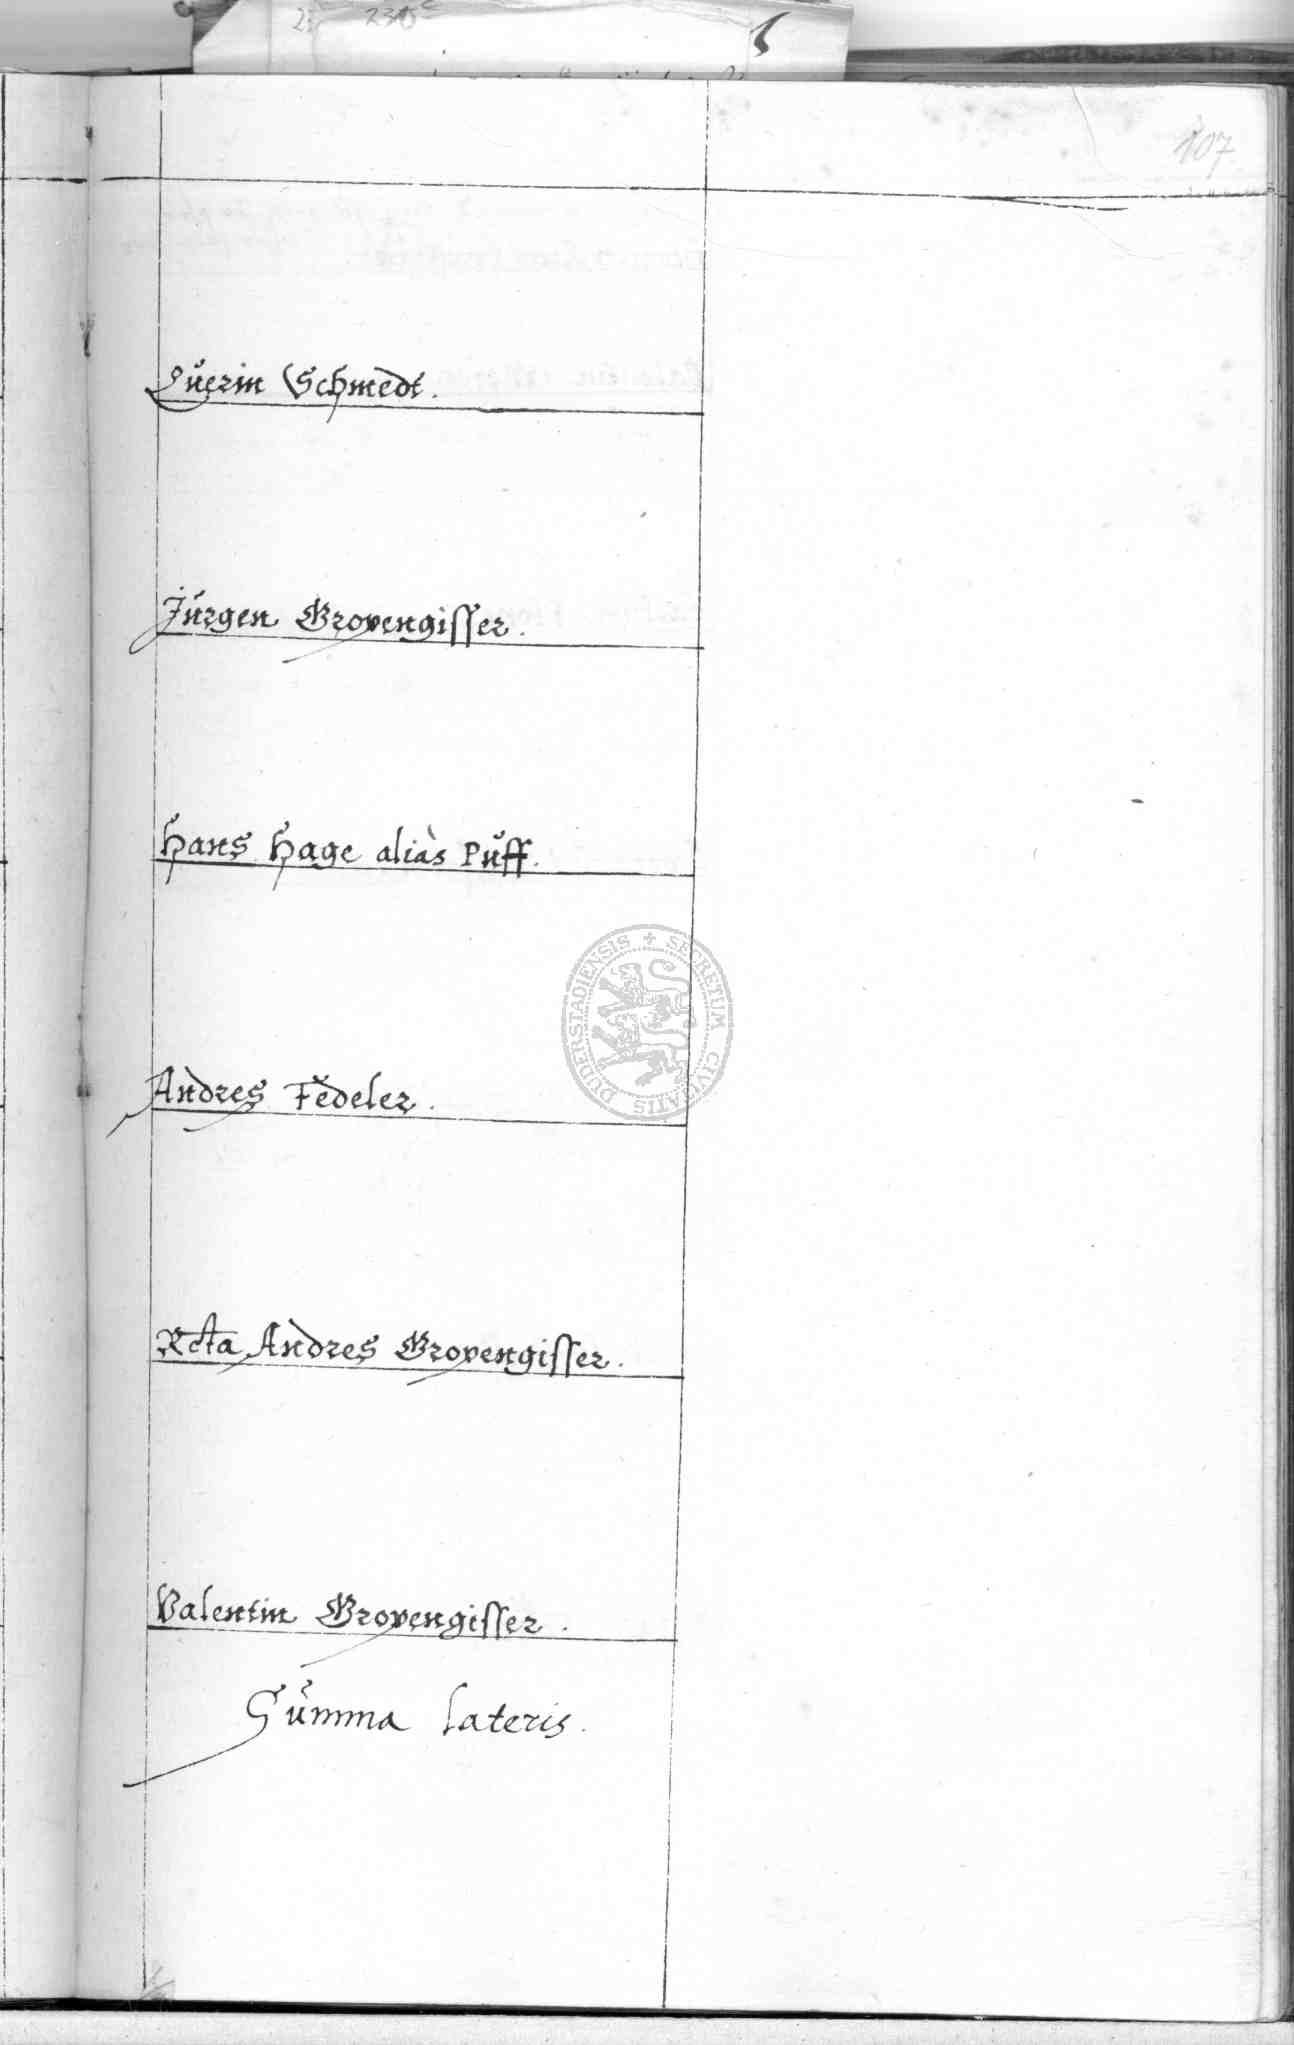 107
Querin Schmedt.
Jürgen Gropengisser.
Hans Hage aliàs Pŭff.
Andres Fedeler.
Rcta Andres Gropengisser.
Valentin Gropengisser.
Sŭmma lateris.
SECRETUM CIVITATIS DUDERSTADIENSIS